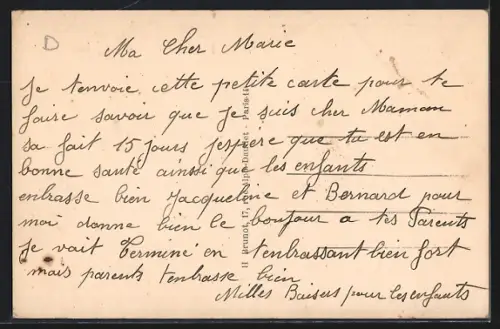 D
Ma Cher Marie
Je t'envoie cette petite carte pour te
faire savoir que je suis cher Maman
sa fait 15 jours j'espère que tu est en
bonne santé ainsi que les enfants
enbrasse bien Jacqueline et Bernard pour
moi donne bien le bonjour a tes Parents
Je vait Terminé en t'enbrassant bien fort
mais parents t'enbrasse bien
Milles Baisers pour les enfants
H. Brunot, 17, Alph-Daudet - Paris